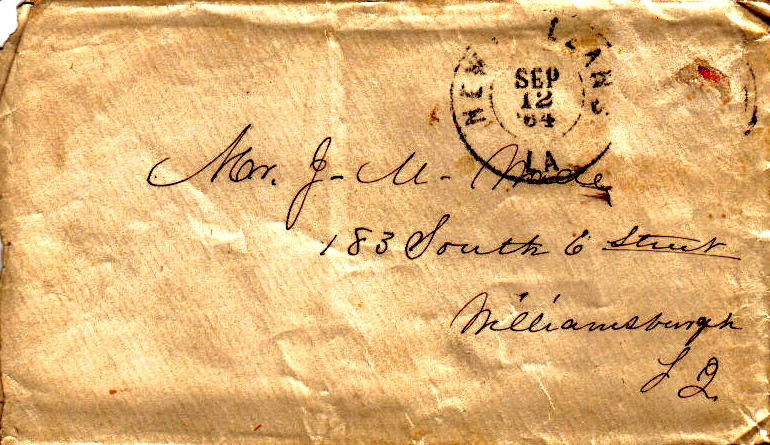 NEW LEANS
SEP
12
'64
LA
Mr. J - M -
183 South 6 Street
Williamsburgh